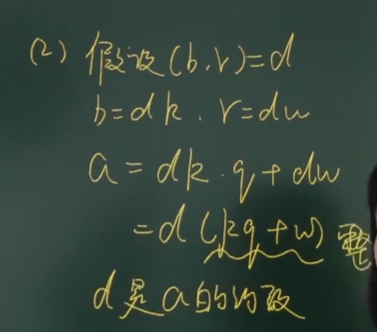 (2) 假设(b,r)=d
b=dk, r=dw
a=dk·q+dw
=d(kq+w) 整
d是a的约数